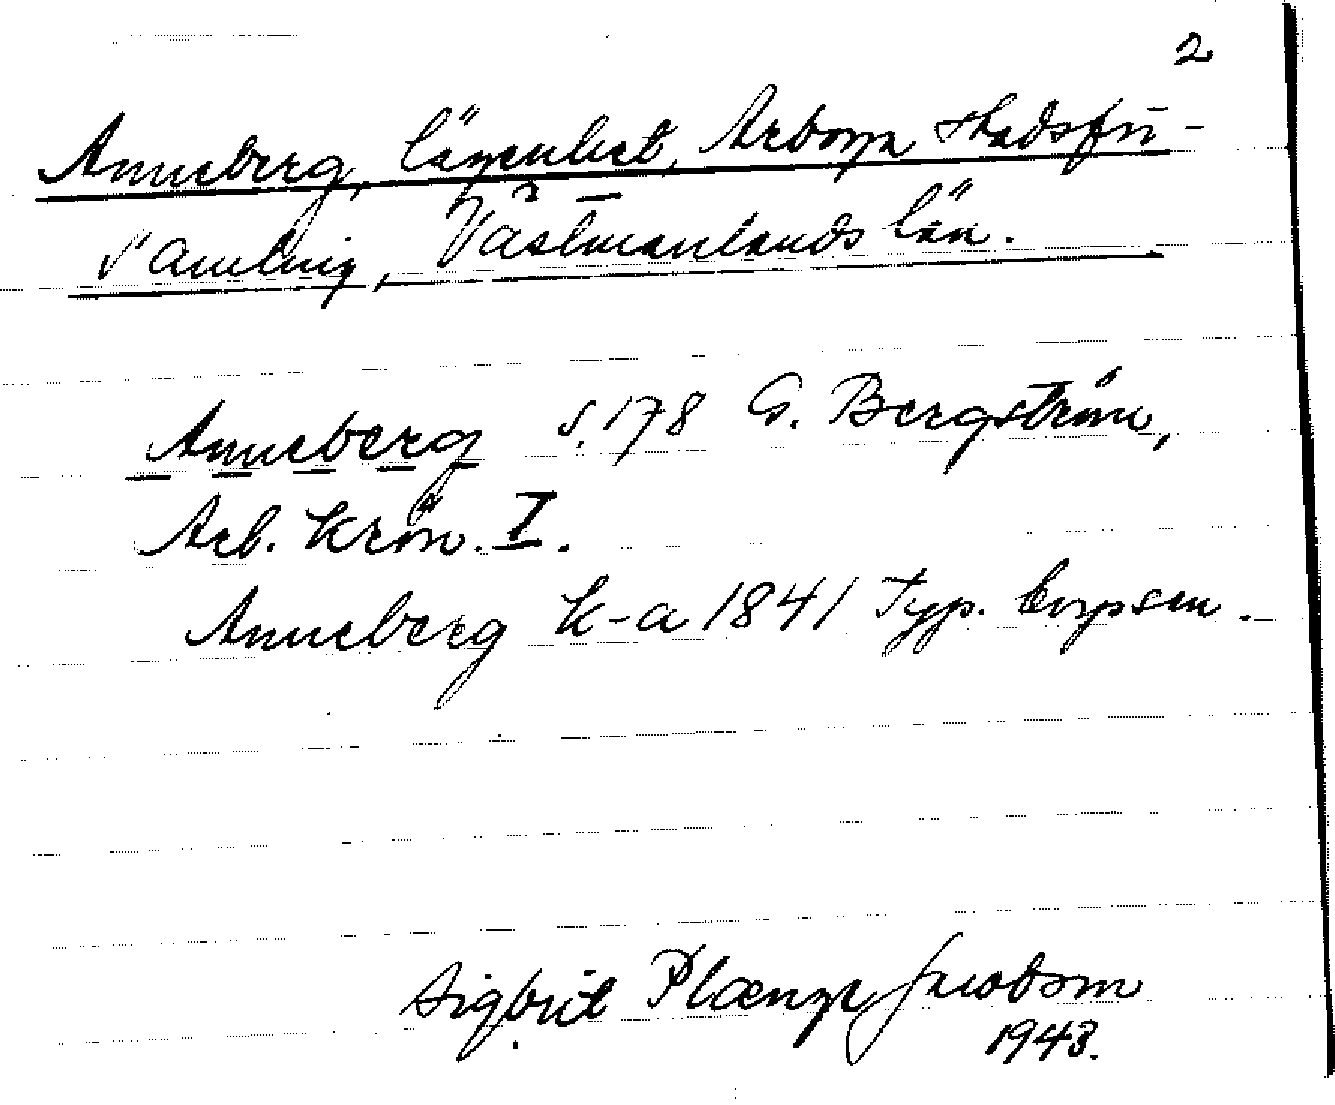 2
Anneberg, lägenhet, Arboga stadsför-
samling, Västmanlands län.
Anneberg s. 178 G. Bergström,
Arb. krön. I.
Anneberg k-a 1841 Typ.
Sigbrit Plænge Jacobson
1943.